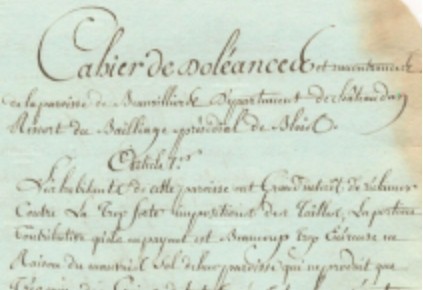 Cahier de Doléances et remontrances
de la paroisse de Beauvilliers Département de châteaudun
Ressort du Bailliage présidial de Blois.
Article 1.er
Les habitants de cette paroisse ont Grand interet de réclamer
Contre La Trop forte imposition des Tailles, La portion
Contributive qu'ils en payent est Beaucoup trop Onéreuse en
Raison du mauvais Sol de leur paroisse qui ne produit que